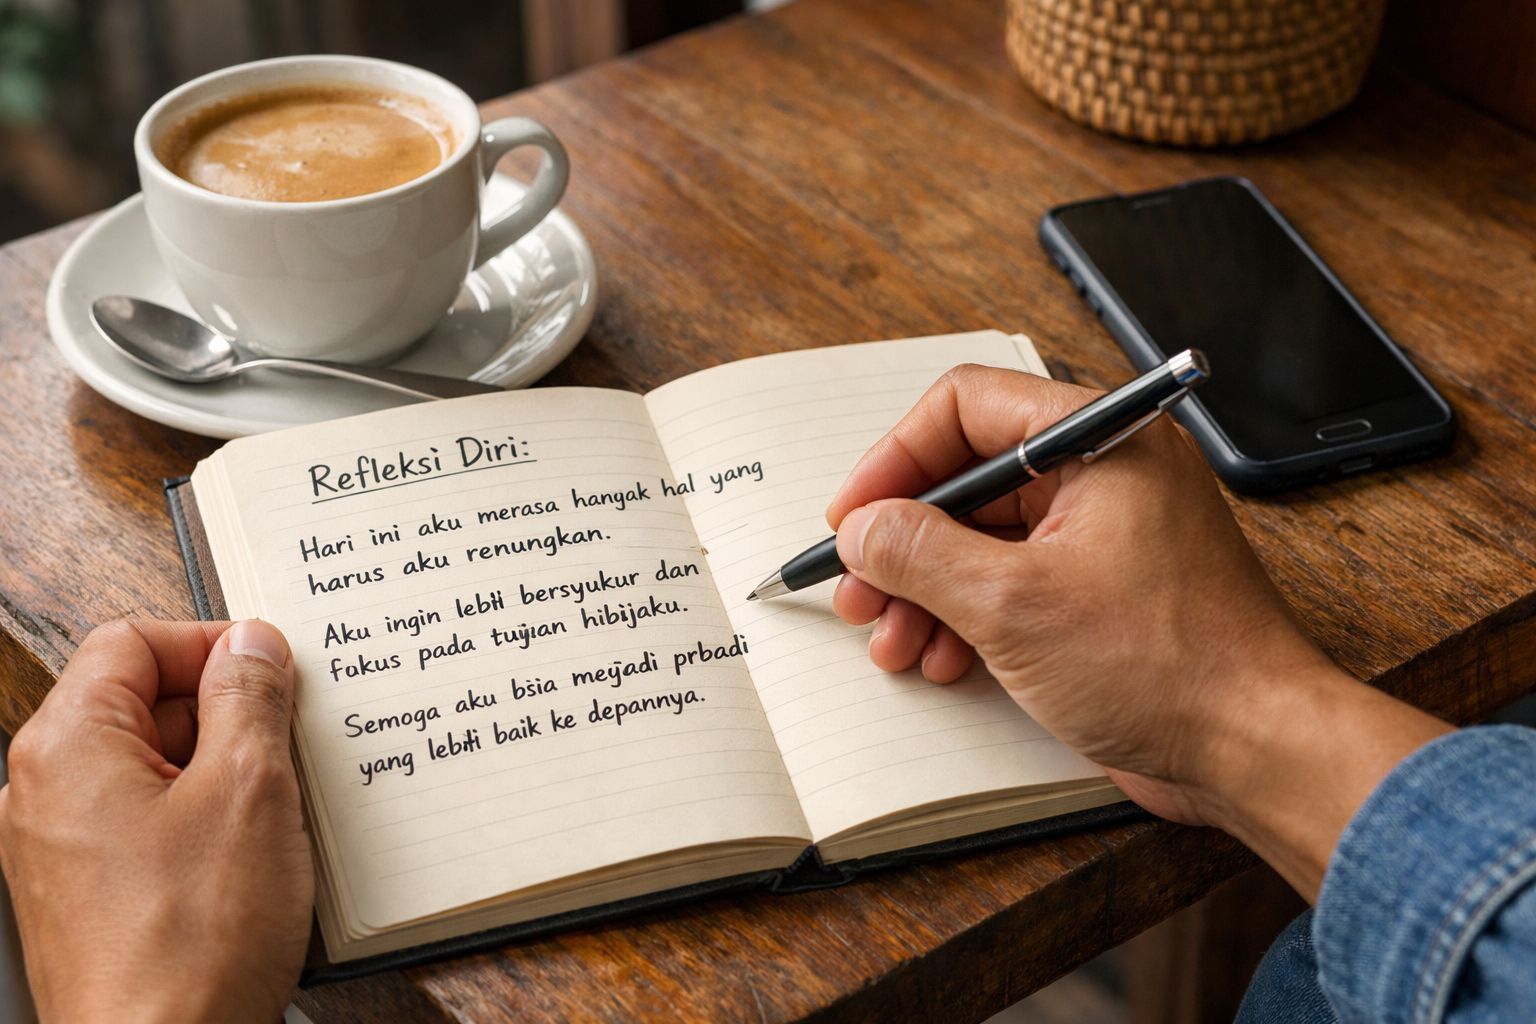 Refleksi Diri:
Hari ini aku merasa hanyak hal yang
harus aku renungkan.
Aku ingin bersyukur dan
fokus pada hibijaku.
Semoga aku bsia prbadi
yang baik ke depannya.